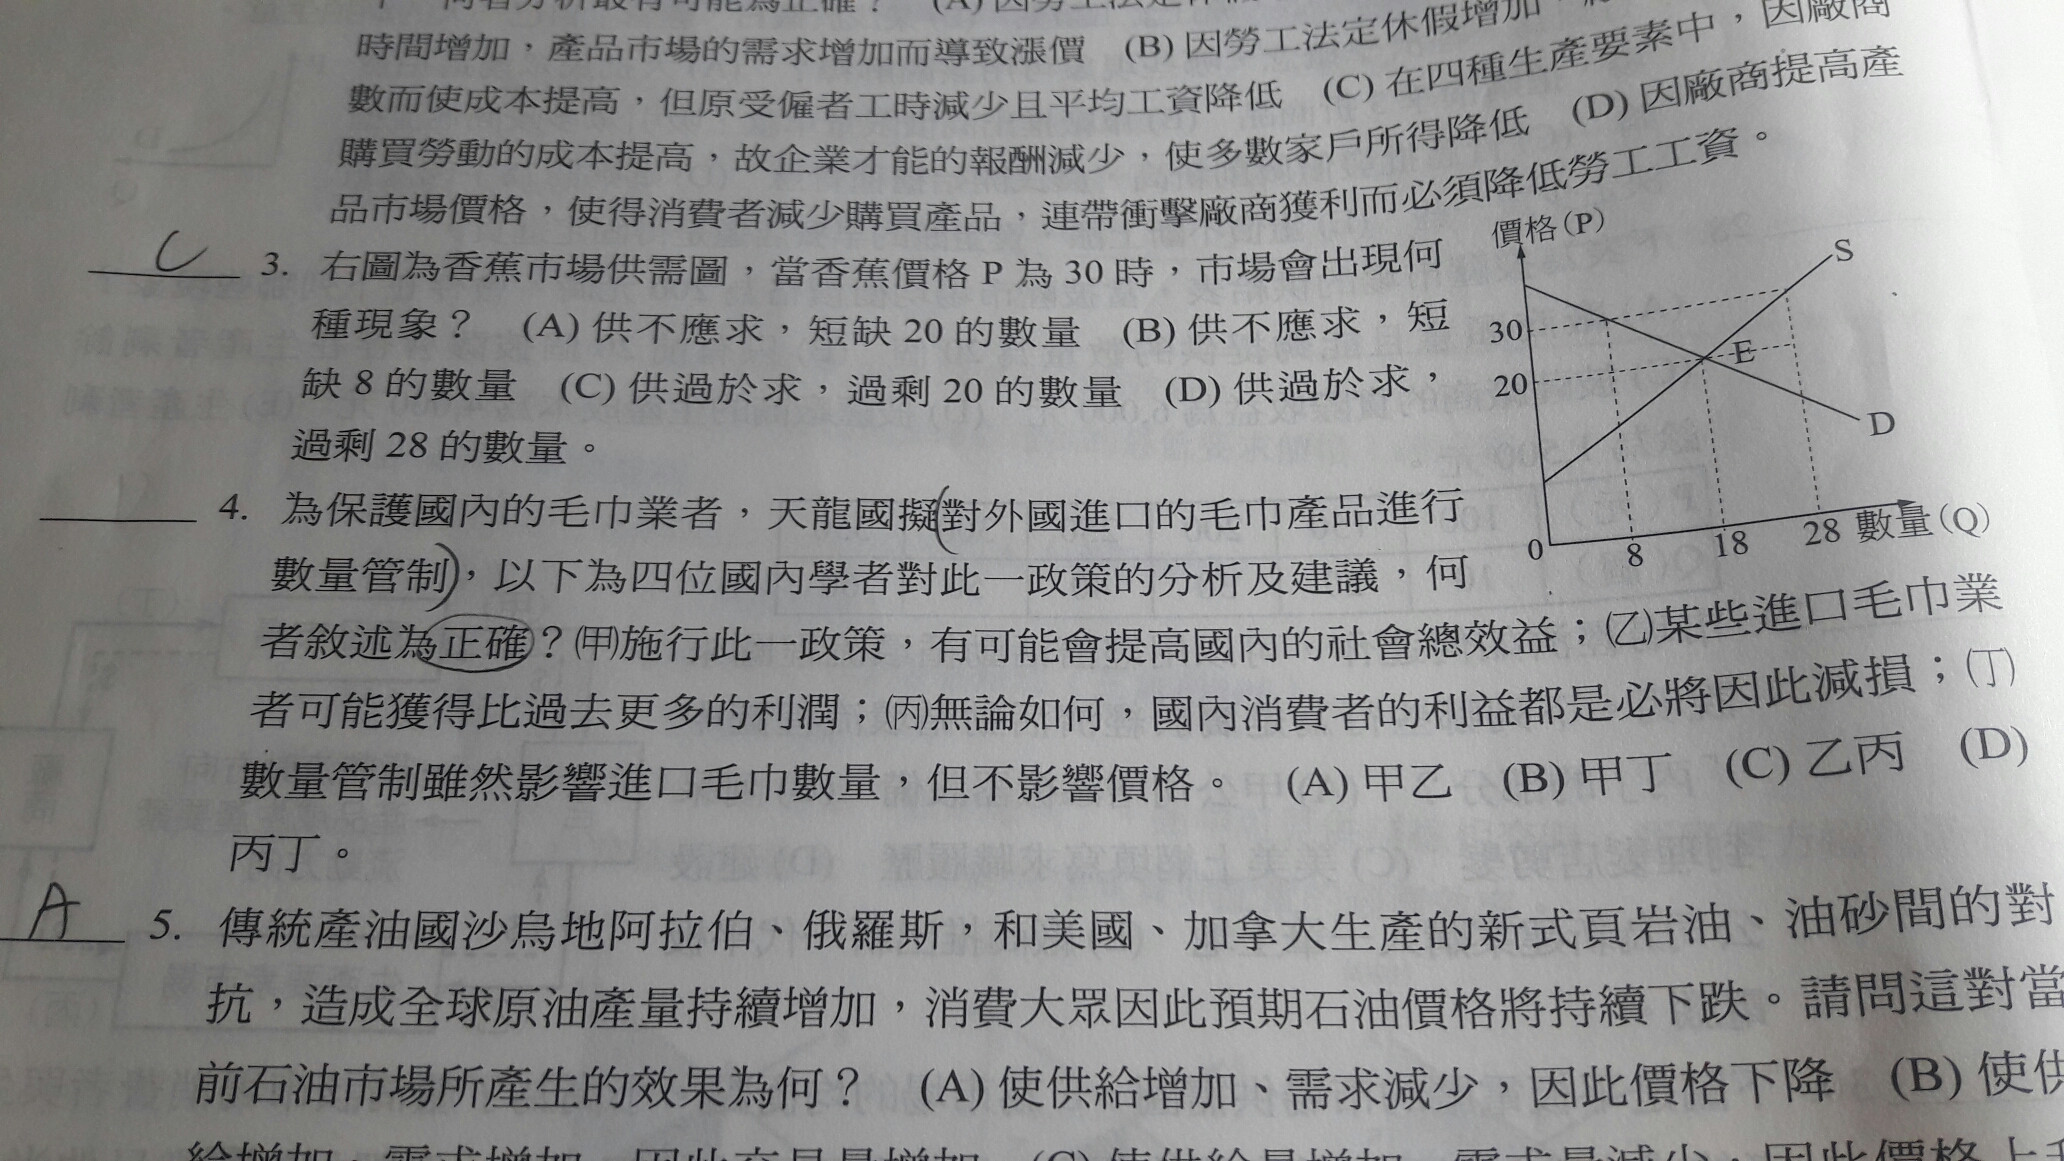 時間增加，產品市場的需求增加而導致漲價 (B) 因勞工法定休假增加，
數而使成本提高，但原受僱者工時減少且平均工資降低 (C) 在四種生產要素中，因廠商
購買勞動的成本提高，故企業才能的報酬減少，使多數家戶所得降低 (D) 因廠商提高產
品市場價格，使得消費者減少購買產品，連帶衝擊廠商獲利而必須降低勞工工資。
C 3. 右圖為香蕉市場供需圖，當香蕉價格 P 為 30 時，市場會出現何
種現象？ (A) 供不應求，短缺 20 的數量 (B) 供不應求，短
缺 8 的數量 (C) 供過於求，過剩 20 的數量 (D) 供過於求，
過剩 28 的數量。
價格(P)
S
30
E
20
D
0 8 18 28 數量(Q)
4. 為保護國內的毛巾業者，天龍國擬(對外國進口的毛巾產品進行
數量管制)，以下為四位國內學者對此一政策的分析及建議，何
者敘述為正確？㈱施行此一政策，有可能會提高國內的社會總效益；(乙)某些進口毛巾業
者可能獲得比過去更多的利潤；(丙)無論如何，國內消費者的利益都是必將因此減損；(丁)
數量管制雖然影響進口毛巾數量，但不影響價格。 (A) 甲乙 (B) 甲丁 (C) 乙丙 (D)
丙丁。
A 5. 傳統產油國沙烏地阿拉伯、俄羅斯，和美國、加拿大生產的新式頁岩油、油砂間的對
抗，造成全球原油產量持續增加，消費大眾因此預期石油價格將持續下跌。請問這對當
前石油市場所產生的效果為何？ (A) 使供給增加、需求減少，因此價格下降 (B) 使供